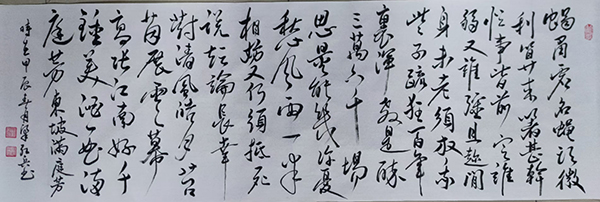 蝸角虚名蠅頭微
利算来著甚幹
忙事皆前定誰
弱又誰强且趁閒
身未老須放我
些子疏狂百年
裏渾教是醉
三萬六千場
思量能幾许憂
愁風雨一半
相妨又何須抵死
説短論長幸
對清風皓月苔
茵展雲幕
高張江南好千
鍾美酒一曲滿
庭芳 東坡滿庭芳
甲辰春月